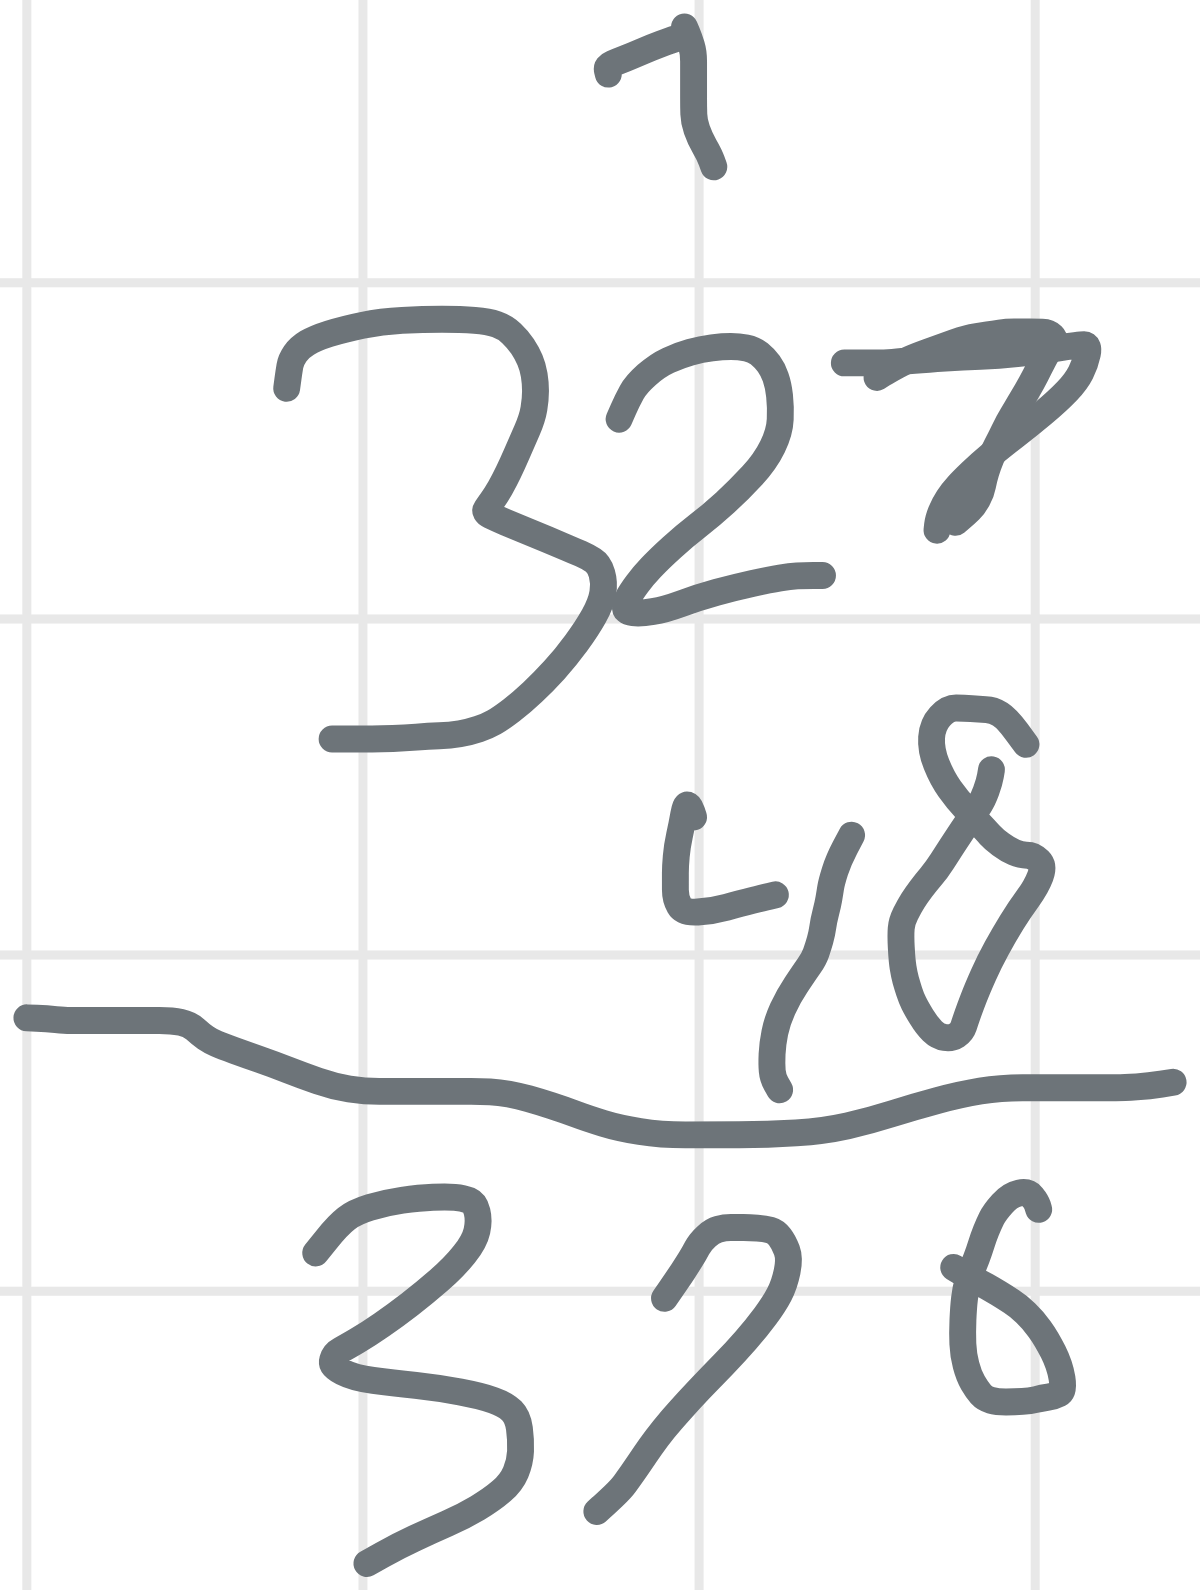 1
327
48
376